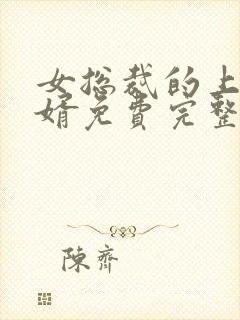 女总裁的上
婿免费完整
陳齊